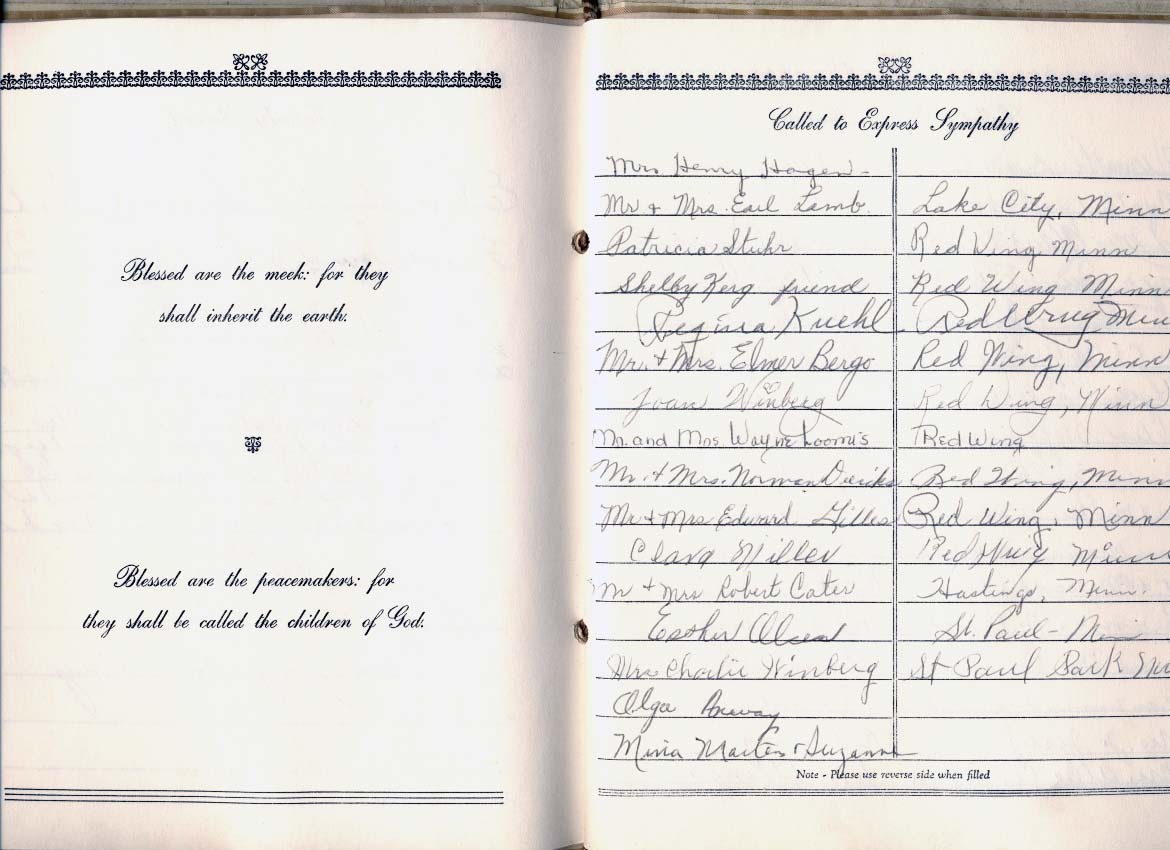 Blessed are the meek: for they
shall inherit the earth.
Blessed are the peacemakers: for
they shall be called the children of God.
Called to Express Sympathy
Mrs Henry Hagen -
Mr & Mrs. Earl Lamb. Lake City, Minn
Patricia Stuhr Red Wing Minn
Shelby Kerg friend Red Wing Minn
Regina Kuehl Red Wing Minn
Mr. & Mrs. Elmer Bergo Red Wing, Minn
Joan Winberg Red Wing, Minn
Mr. and Mrs. Wayne Loomis Red Wing
Mr. & Mrs. Norman Diercks Red Wing, Minn
Mr & Mrs Edward Gilles Red Wing, Minn
Clara Miller Red Wing Minn
Mr & Mrs Robert Cater Hastings, Minn.
Esther Olsen St. Paul - Minn
Mrs Charlie Winberg St Paul Park
Olga
Mina & Suzanne
Note - Please use reverse side when filled